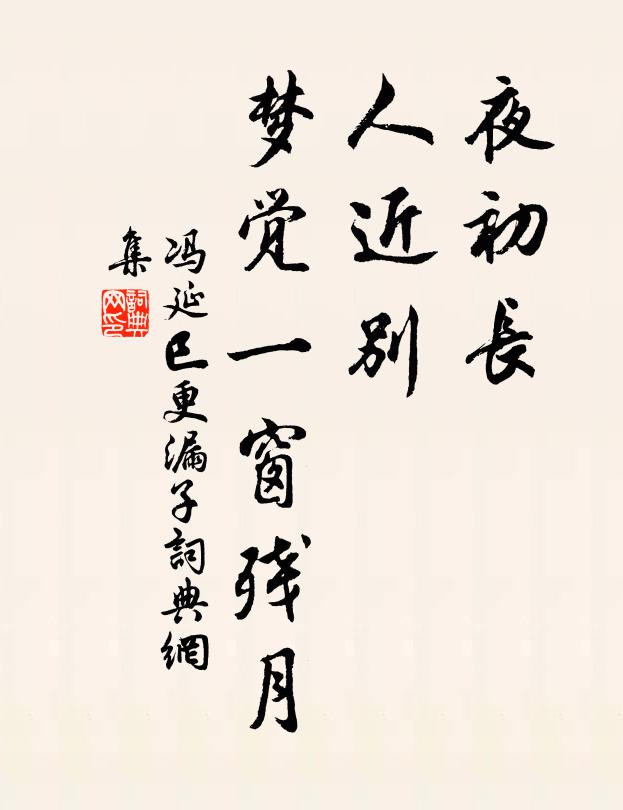 夜初長
人近別
梦觉一窗残月
冯延巳更漏子詞典網
集
詞典网印